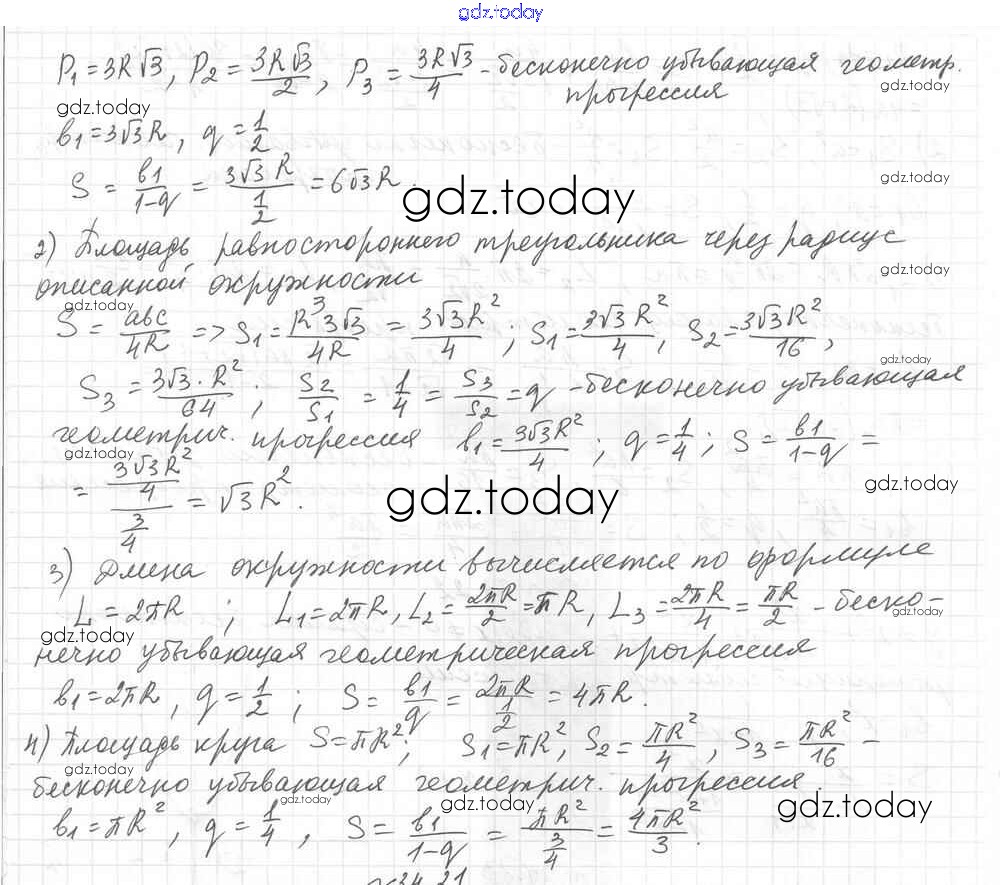 gdz.today
P₁ = 3R√3, P₂ = 3R√3/2, P₃ = 3R√3/4 - бесконечно убывающая геометр.
прогрессия
gdz.today
gdz.today
в₁ = 3√3R, q = 1/2
S = в1/(1-q) = 3√3R/(1/2) = 6√3R.
gdz.today
gdz.today
2) Площадь равностороннего треугольника через радиус
gdz.today
описанной окружности
gdz.today
S = abc/4R => S₁ = R³3√3/4R = 3√3R²/4; S₁ = 3√3R²/4, S₂ = 3√3R²/16,
gdz.today
S₃ = 3√3·R²/64; S₂/S₁ = 1/4 = S₃/S₂ = q - бесконечно убывающая
геометрич. прогрессия в₁ = 3√3R²/4; q = 1/4; S = в1/(1-q) =
gdz.today
= (3√3R²/4)/(3/4) = √3R².
gdz.today
gdz.today
3) Длина окружности вычисляется по формуле
L = 2πR; L₁ = 2πR, L₂ = 2πR/2 = πR, L₃ = 2πR/4 = πR/2 - беско-
gdz.today
gdz.today
нечно убывающая геометрическая прогрессия
в₁ = 2πR, q = 1/2; S = в1/q = 2πR/(1/2) = 4πR.
4) Площадь круга S = πR²; S₁ = πR², S₂ = πR²/4, S₃ = πR²/16 -
gdz.today
бесконечно убывающая геометрич. прогрессия.
gdz.today
gdz.today
gdz.today
в₁ = πR², q = 1/4, S = в1/(1-q) = πR²/(3/4) = 4πR²/3.